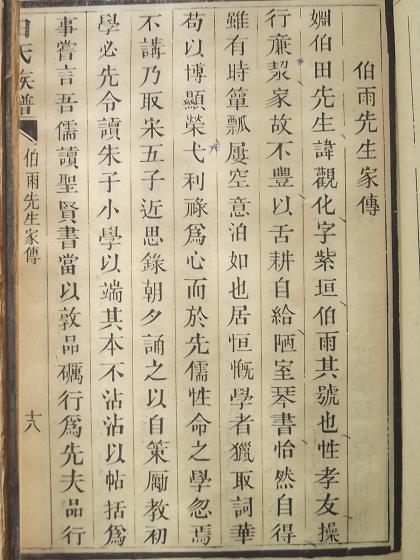 伯雨先生家傳
姻伯田先生諱觀化字紫垣伯雨其號也性孝友操
行廉潔家故不豐以舌耕自給陋室琴書怡然自得
雖有時簞瓢屢空意泊如也居恒慨學者獵取詞華
苟以博顯榮弋利祿爲心而於先儒性命之學忽焉
不講乃取宋五子近思錄朝夕誦之以自策勵教初
學必先令讀朱子小學以端其本不沾沾以帖括爲
事嘗言吾儒讀聖賢書當以敦品礪行爲先夫品行
田氏族譜
伯雨先生家傳
十八